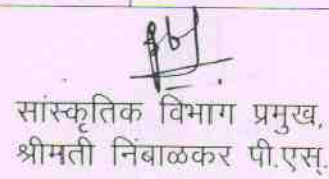 सांस्कृतिक विभाग प्रमुख.
श्रीमती निंबाळकर पी.एस.